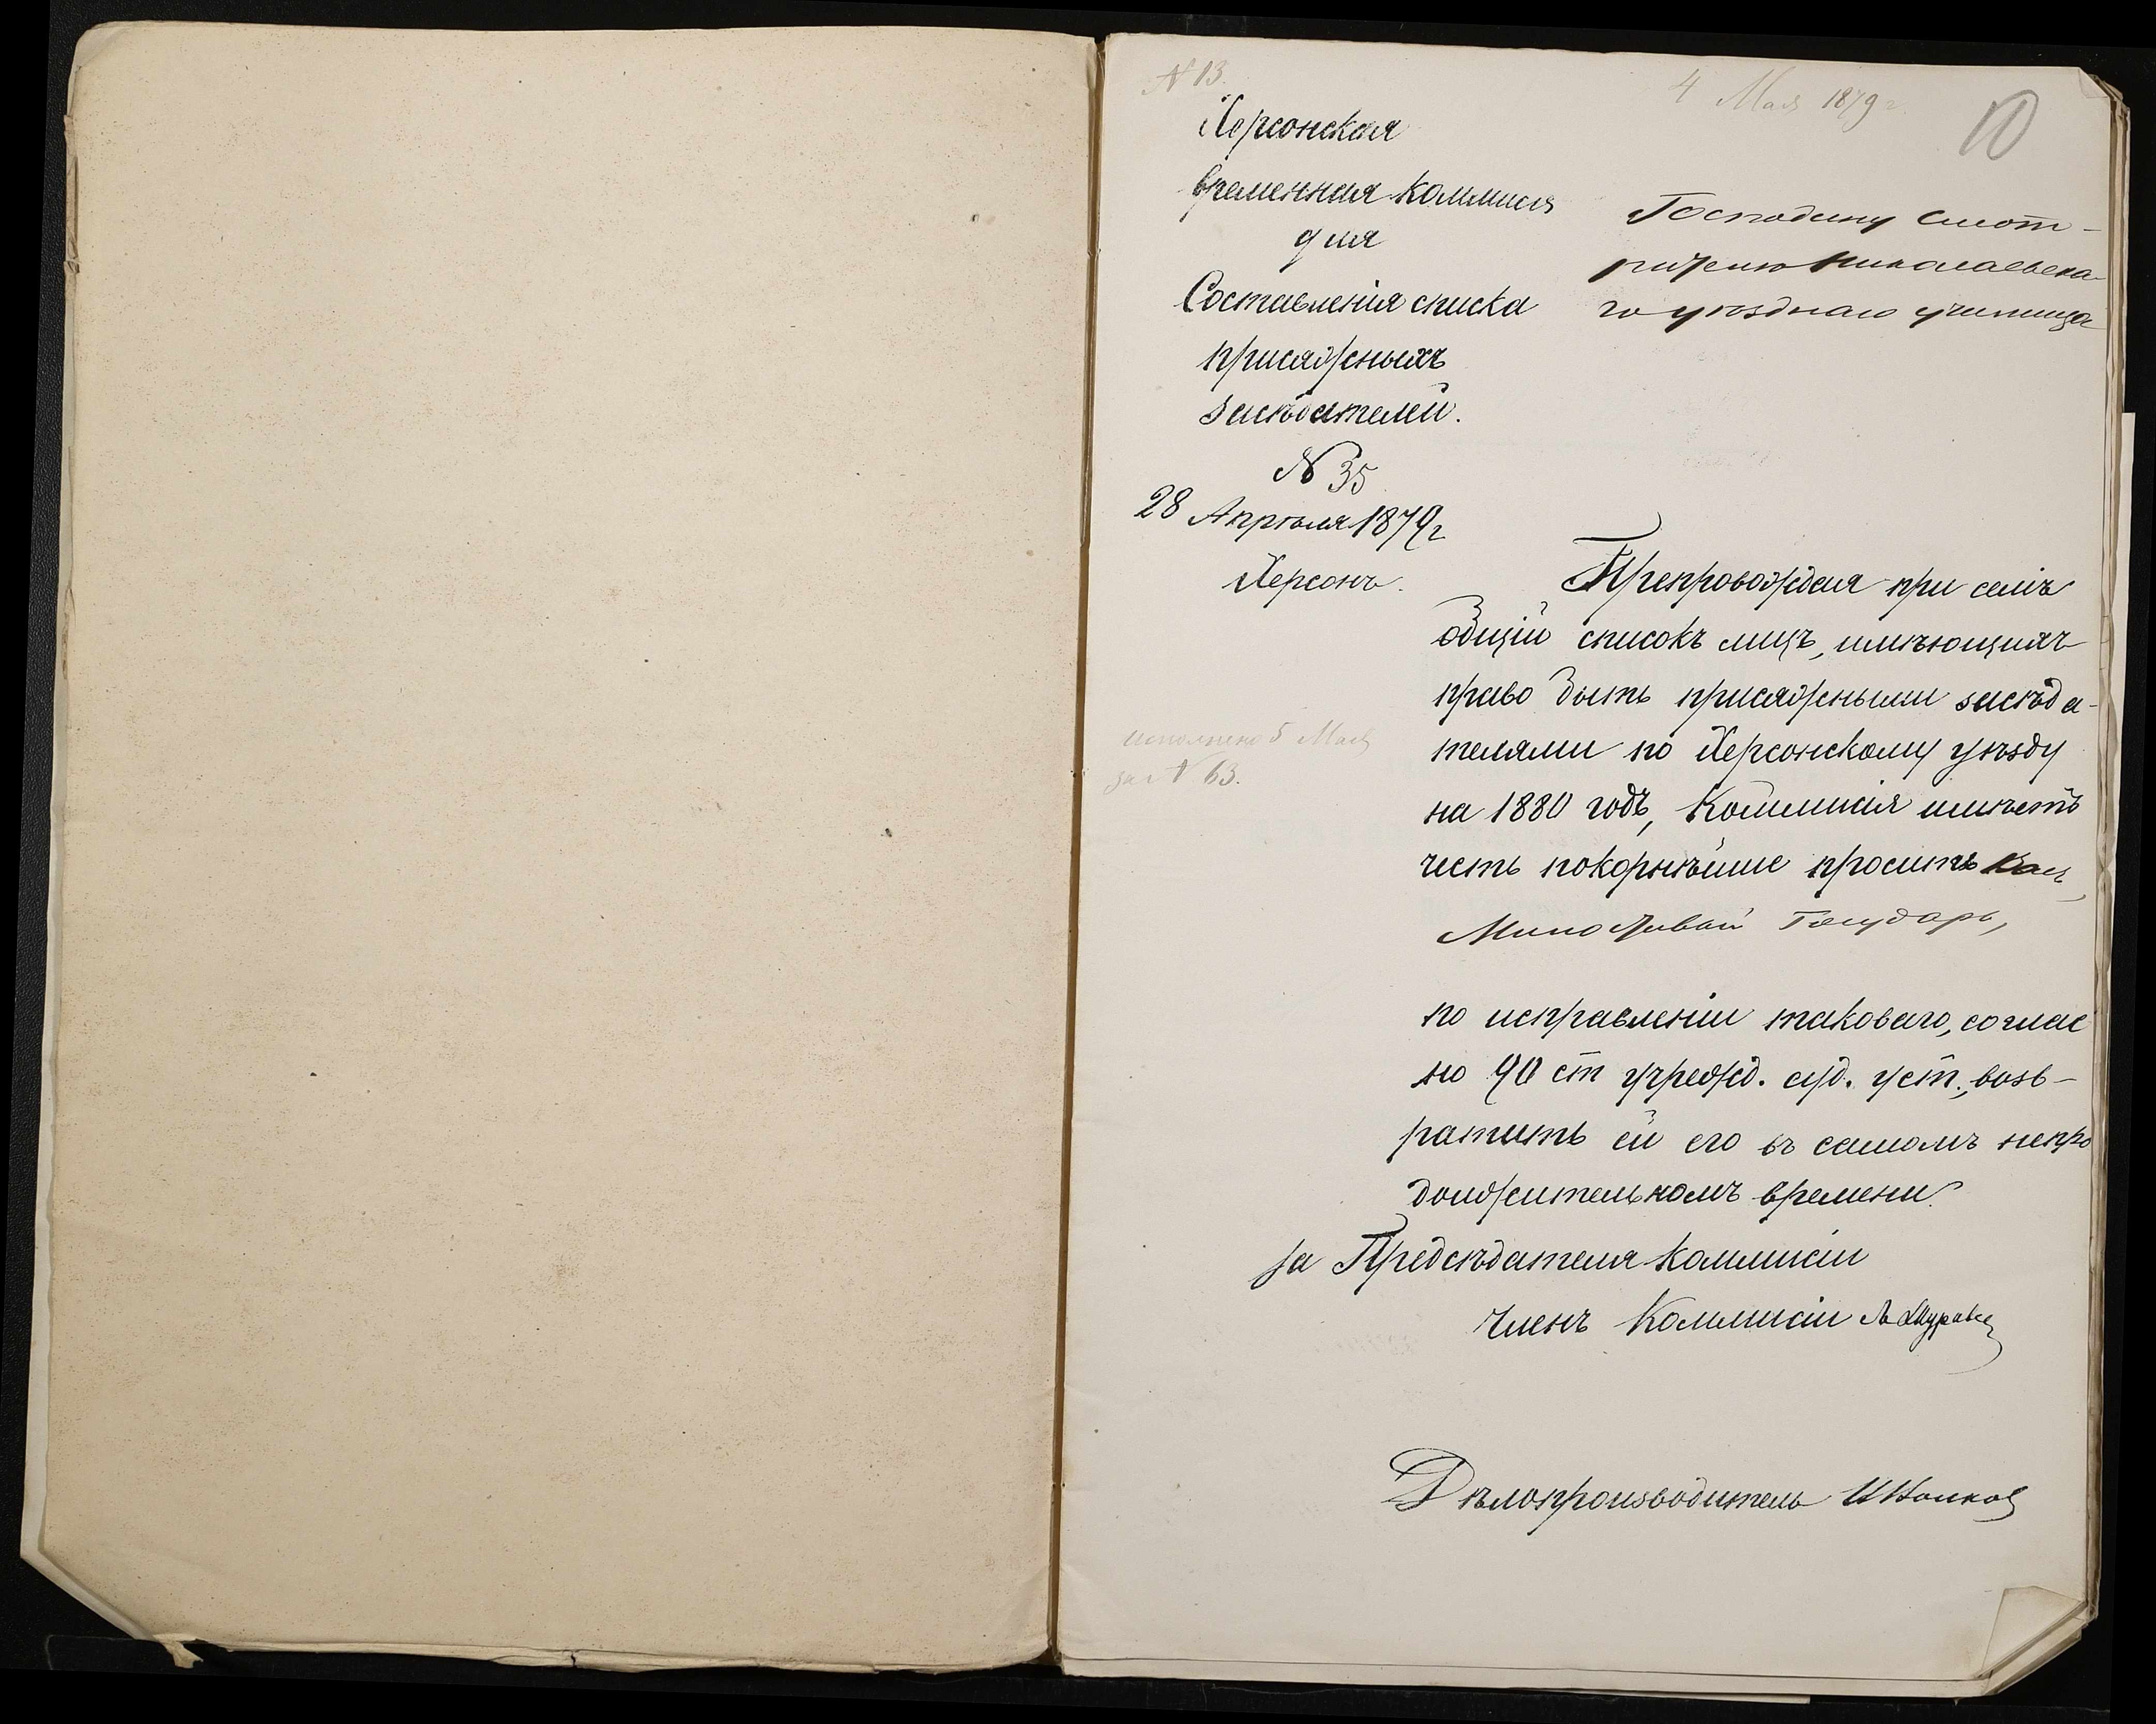 N 13.
4 Мая 1879 г.
10
Херсонская
временная Коммисія
для
Составленія списка
присяжныхъ
засѣдателей.
N 35
28 Апрѣля 1879 г
Херсонъ.
Господину Смот-
рителю Николаевска-
го уѣзднаго училища
Препровождая при семъ
общій списокъ лицъ, имѣющихъ
право быть присяжными засѣда-
телями по Херсонскому уѣзду
на 1880 годъ, Коммисія имѣетъ
честь покорнѣйше просить Васъ,
Милостивый Государь,
исполнено 5 Мая
за N 63.
по исправленіи таковаго, соглас
но 90 ст учрежд. суд. уст., воз-
ратить ей его въ самомъ непро
должительномъ времени.
За Предсѣдателя Коммисіи
Членъ Коммисіи
Дѣлопроизводитель